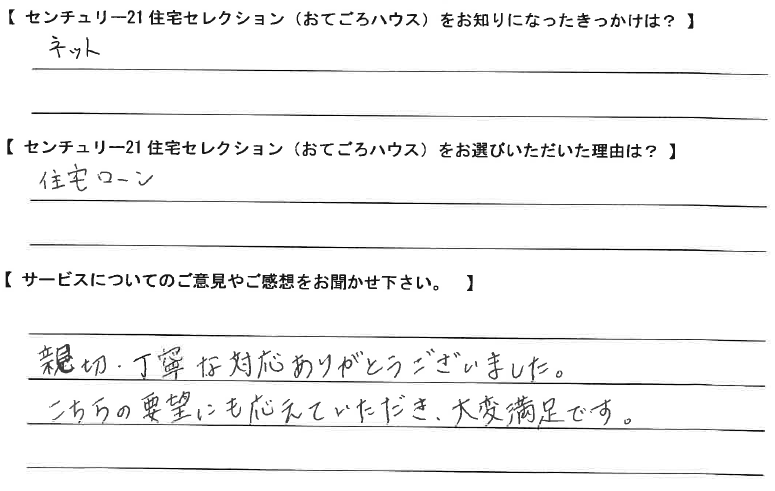 【 センチュリー21 住宅セレクション（おてごろハウス）をお知りになったきっかけは？ 】
ネット
【 センチュリー21 住宅セレクション（おてごろハウス）をお選びいただいた理由は？ 】
住宅ローン
【 サービスについてのご意見やご感想をお聞かせ下さい。 】
親切・丁寧な対応ありがとうございました。
こちらの要望にも応えていただき、大変満足です。